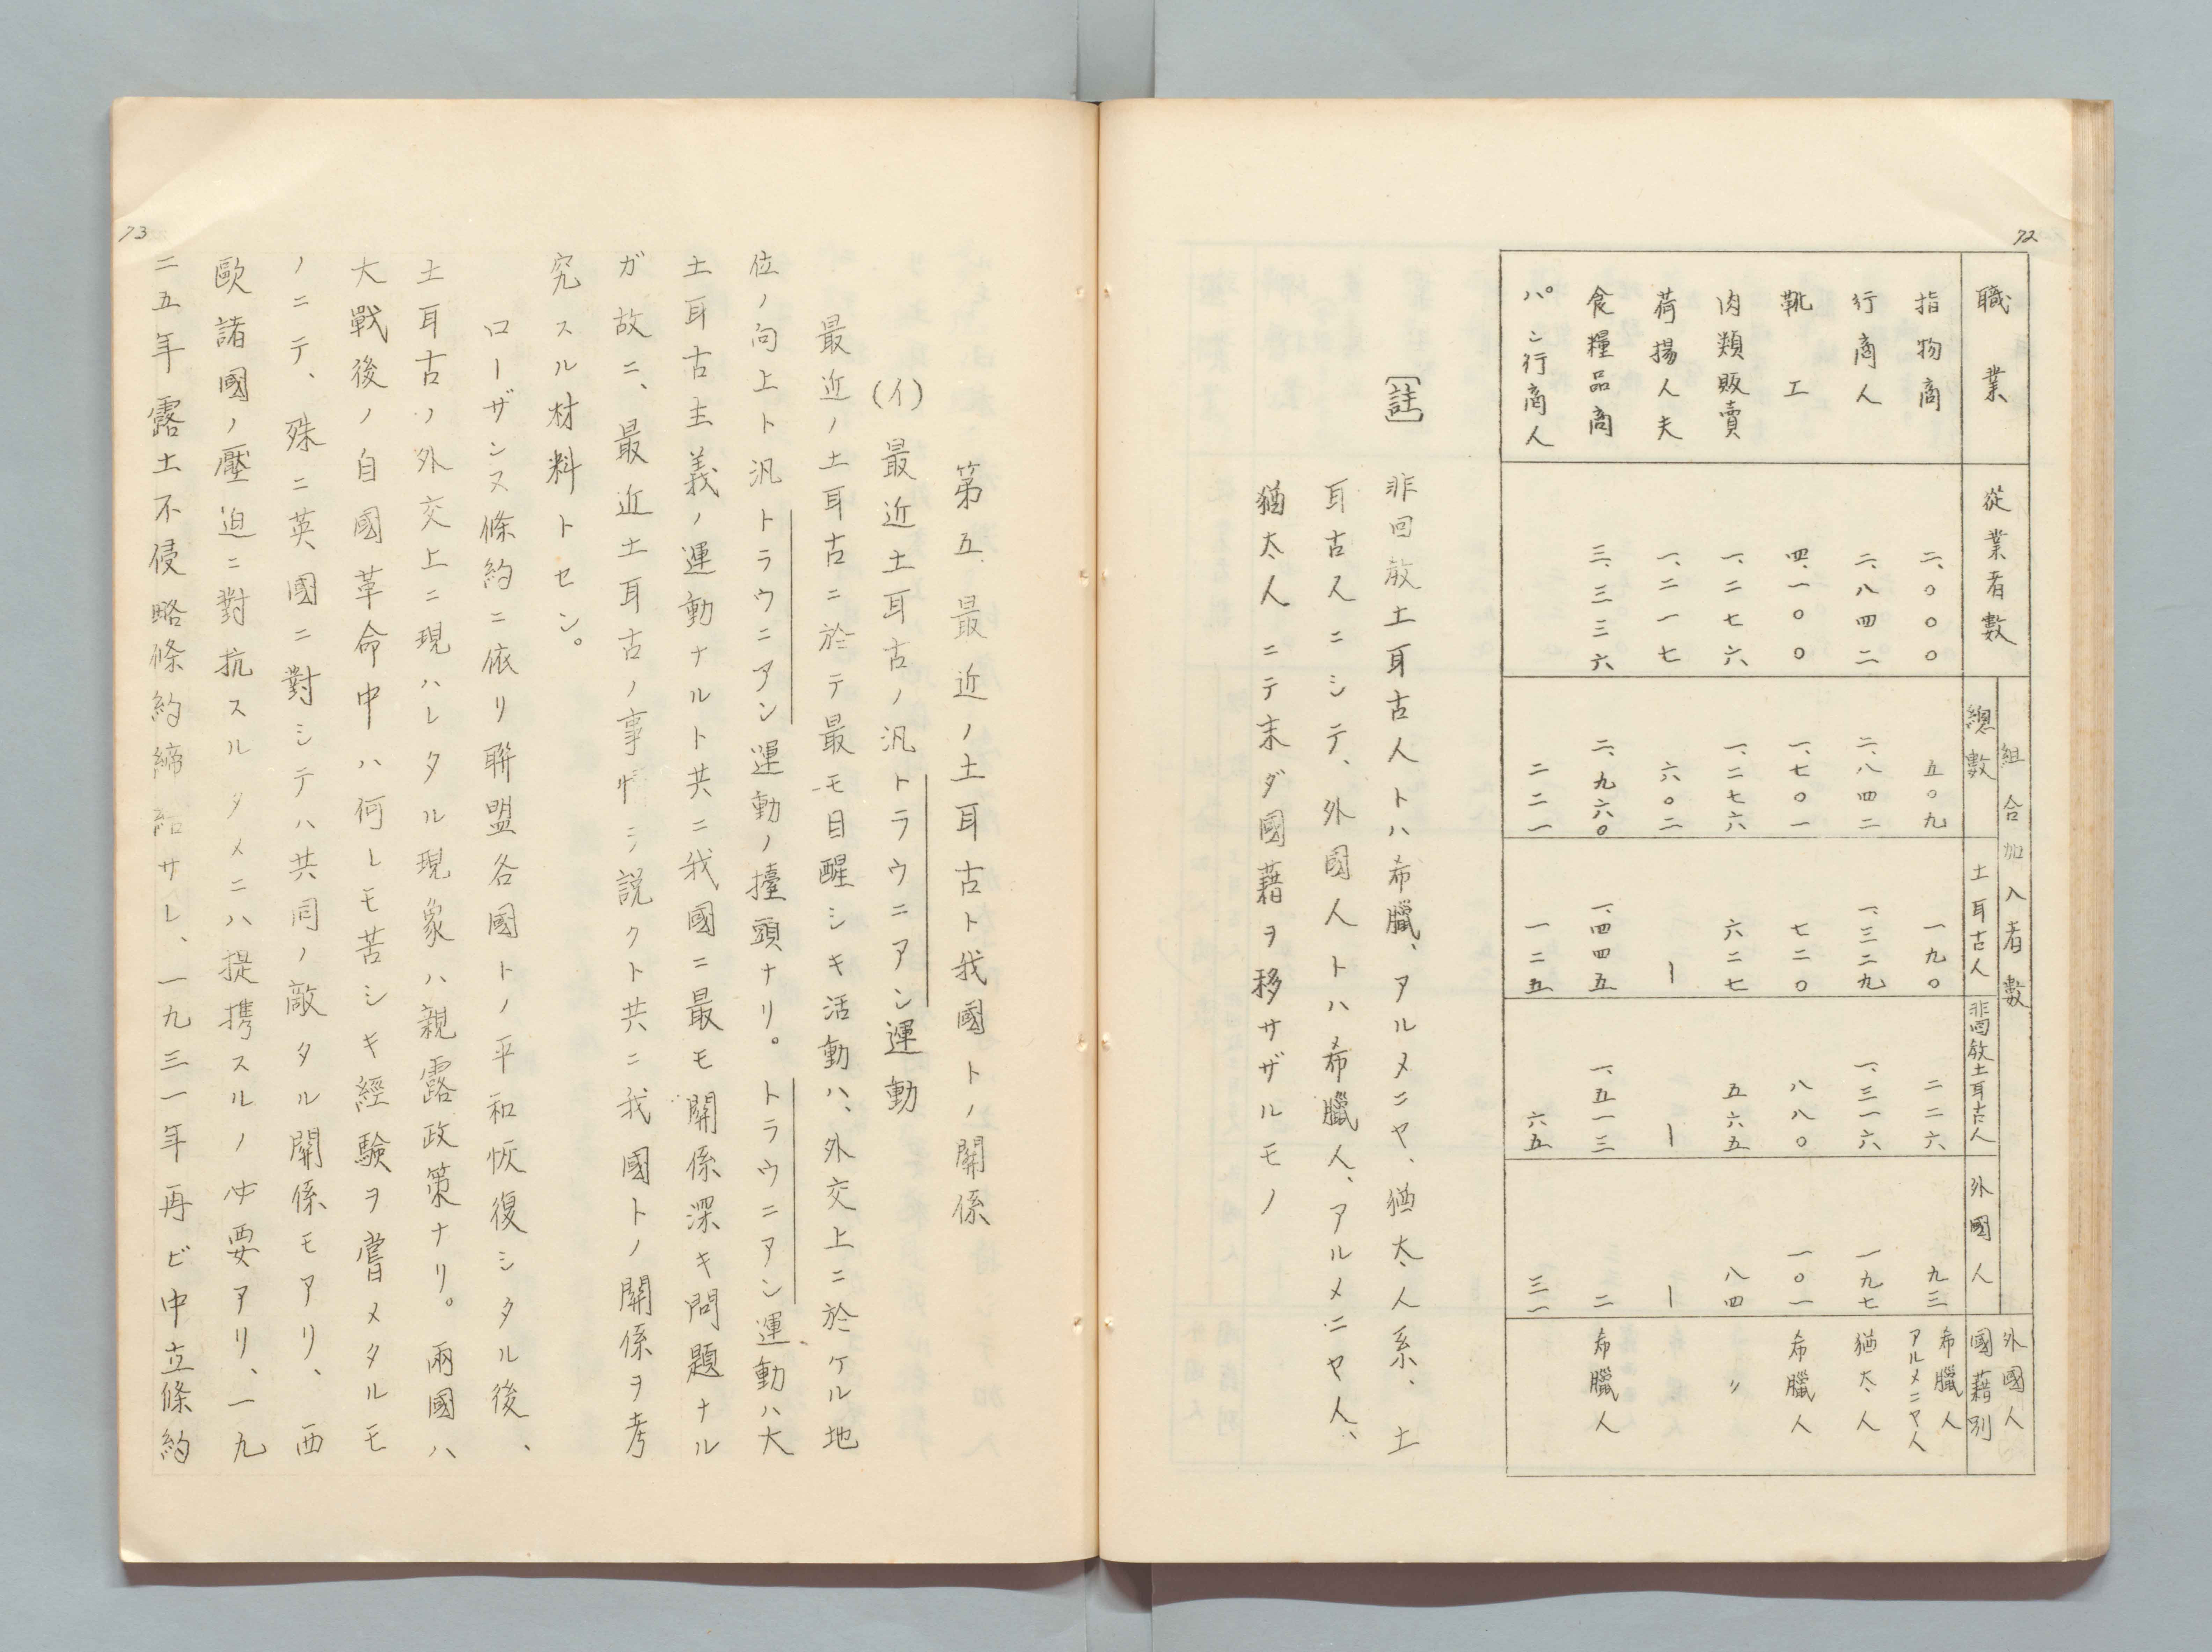 72
職業　從業者數　組合加入者數　總數　土耳古人　非回敎土耳古人　外國人　外國人國藉別
指物商　二、〇〇〇　五〇九　一九〇　二二六　九三　希臘人　アルメニヤ人
行商人　二、八四二　二、八四二　一、三二九　一、三一六　一九七　猶太人
靴工　四、一〇〇　一、七〇一　七二〇　八八〇　一〇一　希臘人
肉類販賣　一、二七六　一、二七六　六二七　五六五　八四　〃
荷揚人夫　一、二一七　六〇二　ー　ー　ー
食糧品商　三、三三六　二、九六〇　一、四四五　一、五一三　二　希臘人
パン行商人　二二一　一二五　六五　三一
〔註〕　非回敎土耳古人トハ希臘、アルメニヤ、猶太人系、土
耳古人ニシテ、外國人トハ希臘人、アルメニヤ人、
猶太人ニテ末ダ國藉ヲ移サザルモノ
73
第五、最近ノ土耳古ト我國トノ關係
(イ)最近土耳古ノ汎トラウニアン運動
最近ノ土耳古ニ於テ最モ目醒シキ活動ハ、外交上ニ於ケル地
位ノ向上ト汎トラウニアン運動ノ擡頭ナリ。トラウニアン運動ハ大
土耳古主義ノ運動ナルト共ニ我國ニ最モ關係深キ問題ナル
ガ故ニ、最近土耳古ノ事情ヲ説クト共ニ我國トノ關係ヲ考
究スル材料トセン。
ローザンヌ條約ニ依リ聯盟各國トノ平和恢復シタル後、
土耳古ノ外交上ニ現ハレタル現象ハ親露政策ナリ。兩國ハ
大戰後ノ自國革命中ハ何レモ苦シキ經驗ヲ嘗メタルモ
ノニテ、殊ニ英國ニ對シテハ共同ノ敵タル關係モアリ、西
歐諸國ノ壓迫ニ對抗スルタメニハ提携スルノ必要アリ、一九
二五年露土不侵略條約締結サレ、一九三一年再ビ中立條約